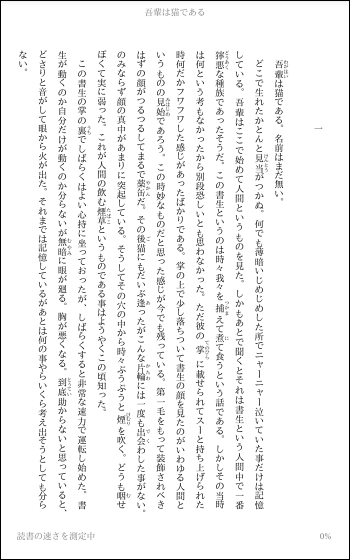 吾輩は猫である
一
吾輩は猫である。名前はまだ無い。
どこで生れたかとんと見当がつかぬ。何でも薄暗いじめじめした所でニャーニャー泣いていた事だけは記憶
している。吾輩はここで始めて人間というものを見た。しかもあとで聞くとそれは書生という人間中で一番
獰悪な種族であったそうだ。この書生というのは時々我々を捕えて煮て食うという話である。しかしその当時
は何という考もなかったから別段恐しいとも思わなかった。ただ彼の掌に載せられてスーと持ち上げられた
時何だかフワフワした感じがあったばかりである。掌の上で少し落ちついて書生の顔を見たのがいわゆる人間と
いうものの見始であろう。この時妙なものだと思った感じが今でも残っている。第一毛をもって装飾されべき
はずの顔がつるつるしてまるで薬缶だ。その後猫にもだいぶ逢ったがこんな片輪には一度も出会わした事がない。
のみならず顔の真中があまりに突起している。そうしてその穴の中から時々ぷうぷうと煙を吹く。どうも咽せ
ぽくて実に弱った。これが人間の飲む煙草というものである事はようやくこの頃知った。
この書生の掌の裏でしばらくはよい心持に坐っておったが、しばらくすると非常な速力で運転し始めた。書
生が動くのか自分だけが動くのか分らないが無暗に眼が廻る。胸が悪くなる。到底助からないと思っていると、
どさりと音がして眼から火が出た。それまでは記憶しているがあとは何の事やらいくら考え出そうとしても分ら
ない。
読書の速さを測定中
0%